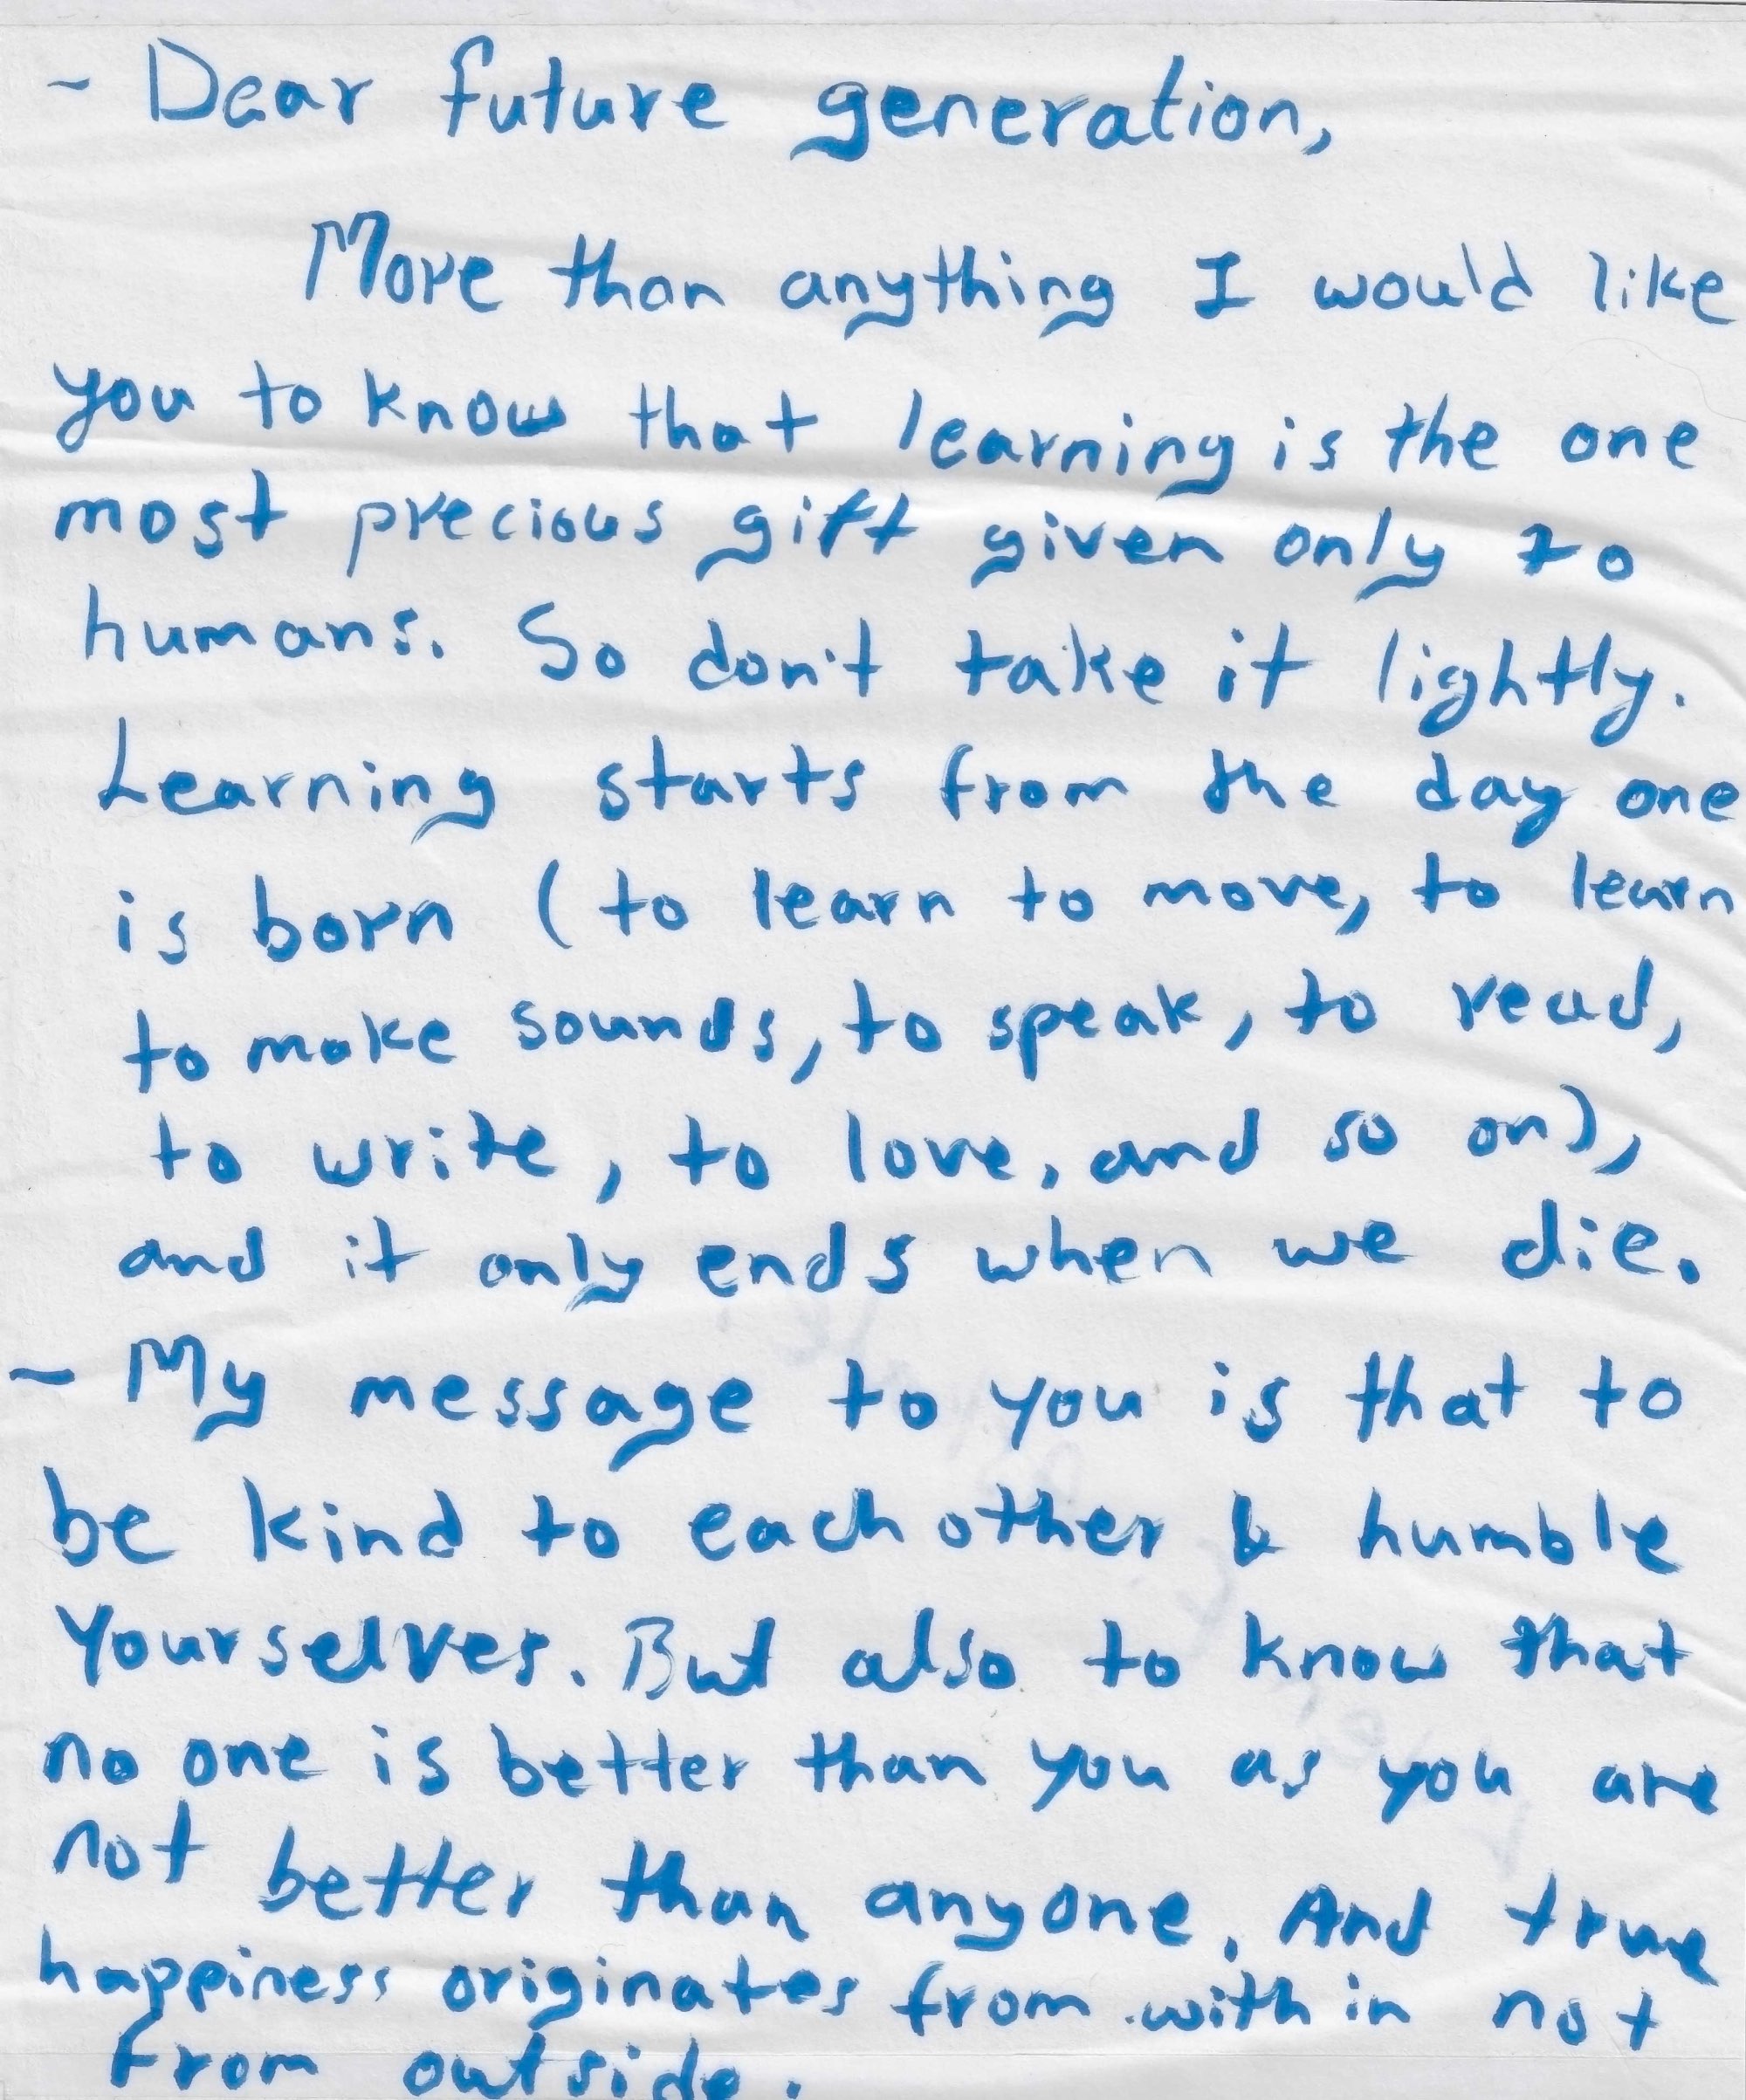 ~ Dear future generation,
More than anything I would like
you to know that learning is the one
most precious gift given only to
humans. So don't take it lightly.
Learning starts from the day one
is born (to learn to move, to learn
to make sounds, to speak, to read,
to write, to love, and so on),
and it only ends when we die.
~ My message to you is that to
be kind to each other & humble
yourselves. But also to know that
no one is better than you as you are
not better than anyone. And true
happiness originates from within not
from outside.